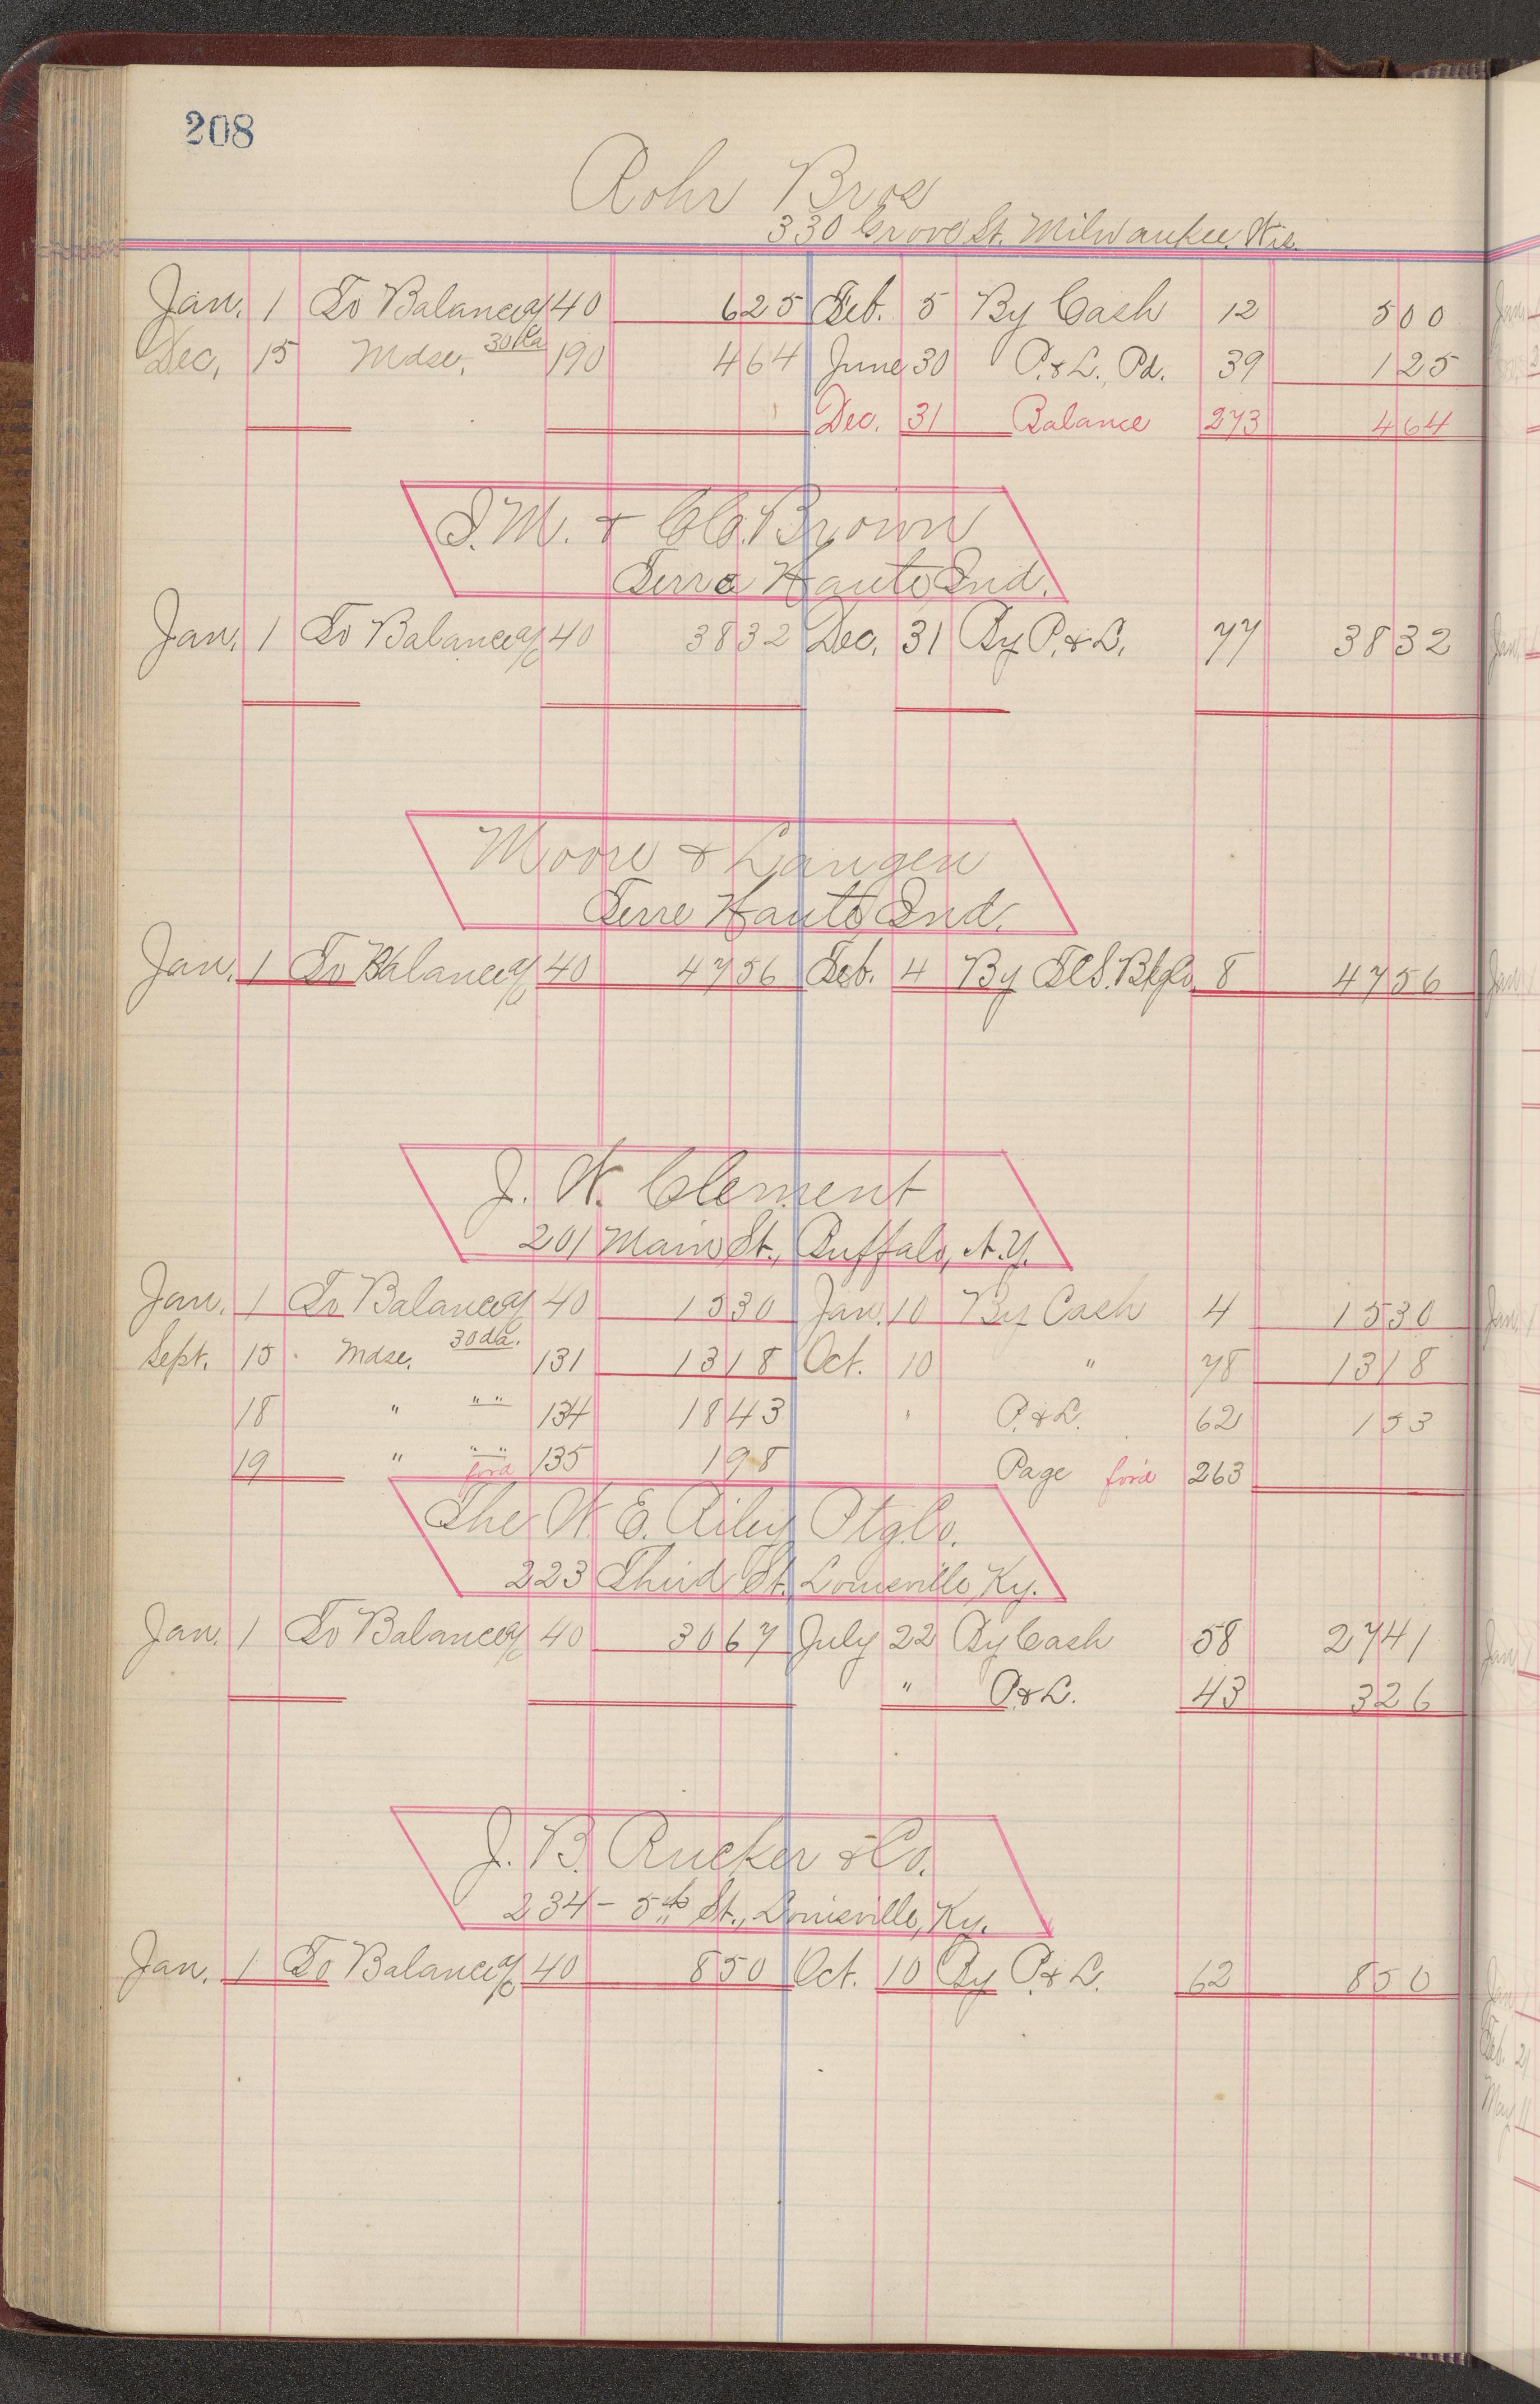 208
Rohr Bros
330 Grove St. Milwaukee, Wis.
Jan. 1 To Balance a/c 40 625 Feb. 5 By Cash 12 500
Dec. 15 Mdse. 30 da 190 464 June 30 P. & L. Pd. 39 125
Dec. 31 Balance 273 464
Brown
Terre Haute, Ind.
Jan. 1 To Balance a/c 40 3832 Dec. 31 By P. & L. 77 3832
Moore & Langen
Terre Haute, Ind.
Jan. 1 To Balance a/c 40 4756 Feb. 4 By 8 4756
J. W. Clement
201 Main St., Buffalo, N.Y.
Jan. 1 To Balance a/c 40 1530 Jan. 10 By Cash 4 1530
Sept. 15 Mdse. 30 da. 131 1318 Oct. 10 " 78 1318
18 " " " 134 1843 ' P. & L. 62 153
19 " " " ford 135 198 Page for'd 263
The W. E. Riley Ptg. Co.
223 Third St. Louisville, Ky.
Jan. 1 To Balance a/c 40 3067 July 22 By Cash 58 2741
" P. & L. 43 326
J. B. Rucker & Co.
234 - 5th St., Louisville, Ky.
Jan. 1 To Balance a/c 40 850 Oct. 10 By P. & L. 62 850